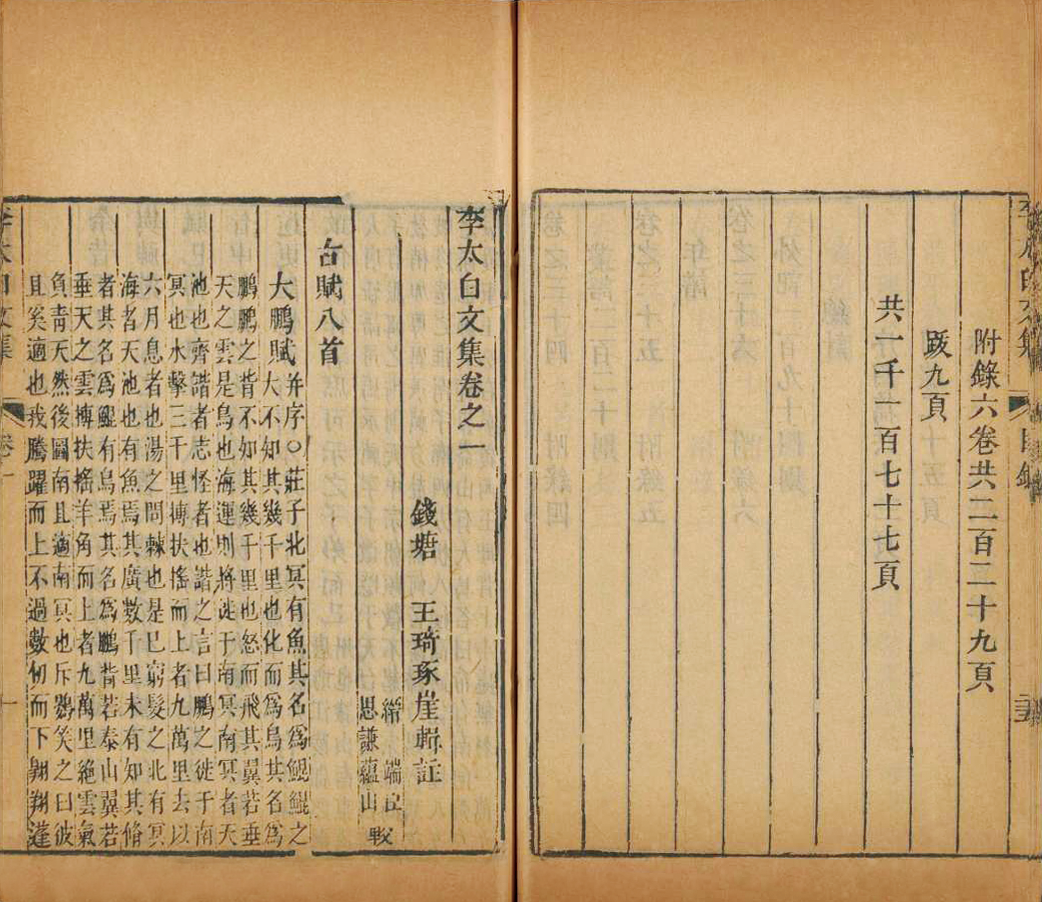 附錄六卷共二百二十九頁
跋九頁
共一千一百七十七頁
李太白文集卷之一
錢塘　王琦琢崖輯註
縉端臣
思謙蘊山
較
古賦八首
大鵬賦并序○莊子北冥有魚其名爲鯤鯤之
大不知其幾千里也化而爲鳥其名爲
鵬鵬之背不知其幾千里也怒而飛其翼若垂
天之雲是鳥也海運則將徙于南冥南冥者天
池也齊諧者志怪者也諧之言曰鵬之徙于南
冥也水擊三千里摶扶搖而上者九萬里去以
六月息者也湯之問棘也是已窮髮之北有冥
海者天池也有魚焉其廣數千里未有知其脩
者其名爲鯤有鳥焉其名爲鵬背若泰山翼若
垂天之雲摶扶搖羊角而上者九萬里絕雲氣
負青天然後圖南且適南冥也斥鷃笑之曰彼
且奚適也我騰躍而上不過數仞而下翱翔蓬
李太白文集　卷一　一